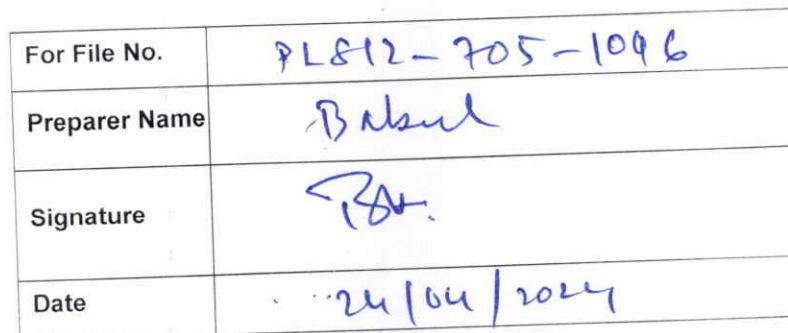 For File No. PL812-705-1096
Preparer Name Babul
Signature
Date 24/04/2024